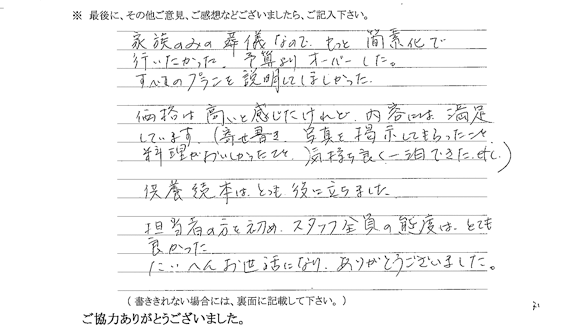 ※ 最後に、その他ご意見、ご感想などございましたら、ご記入下さい。
家族のみの葬儀なので、もっと簡素化で
行いたかった。予算よりオーバーした。
すべてのプランを説明してほしかった。
価格は高いと感じたけれど、内容には満足
しています。(寄せ書き、写真を掲示してもらったことや
料理がおいしかったこと、)気持ち良く一日できた.etc.)
供養絵本は、とても役に立ちました
担当者の方を初め、スタッフ全員の態度は、とても
良かった
たいへんお世話になり、ありがとうございました。
(書ききれない場合には、裏面に記載して下さい。)
ご協力ありがとうございました。